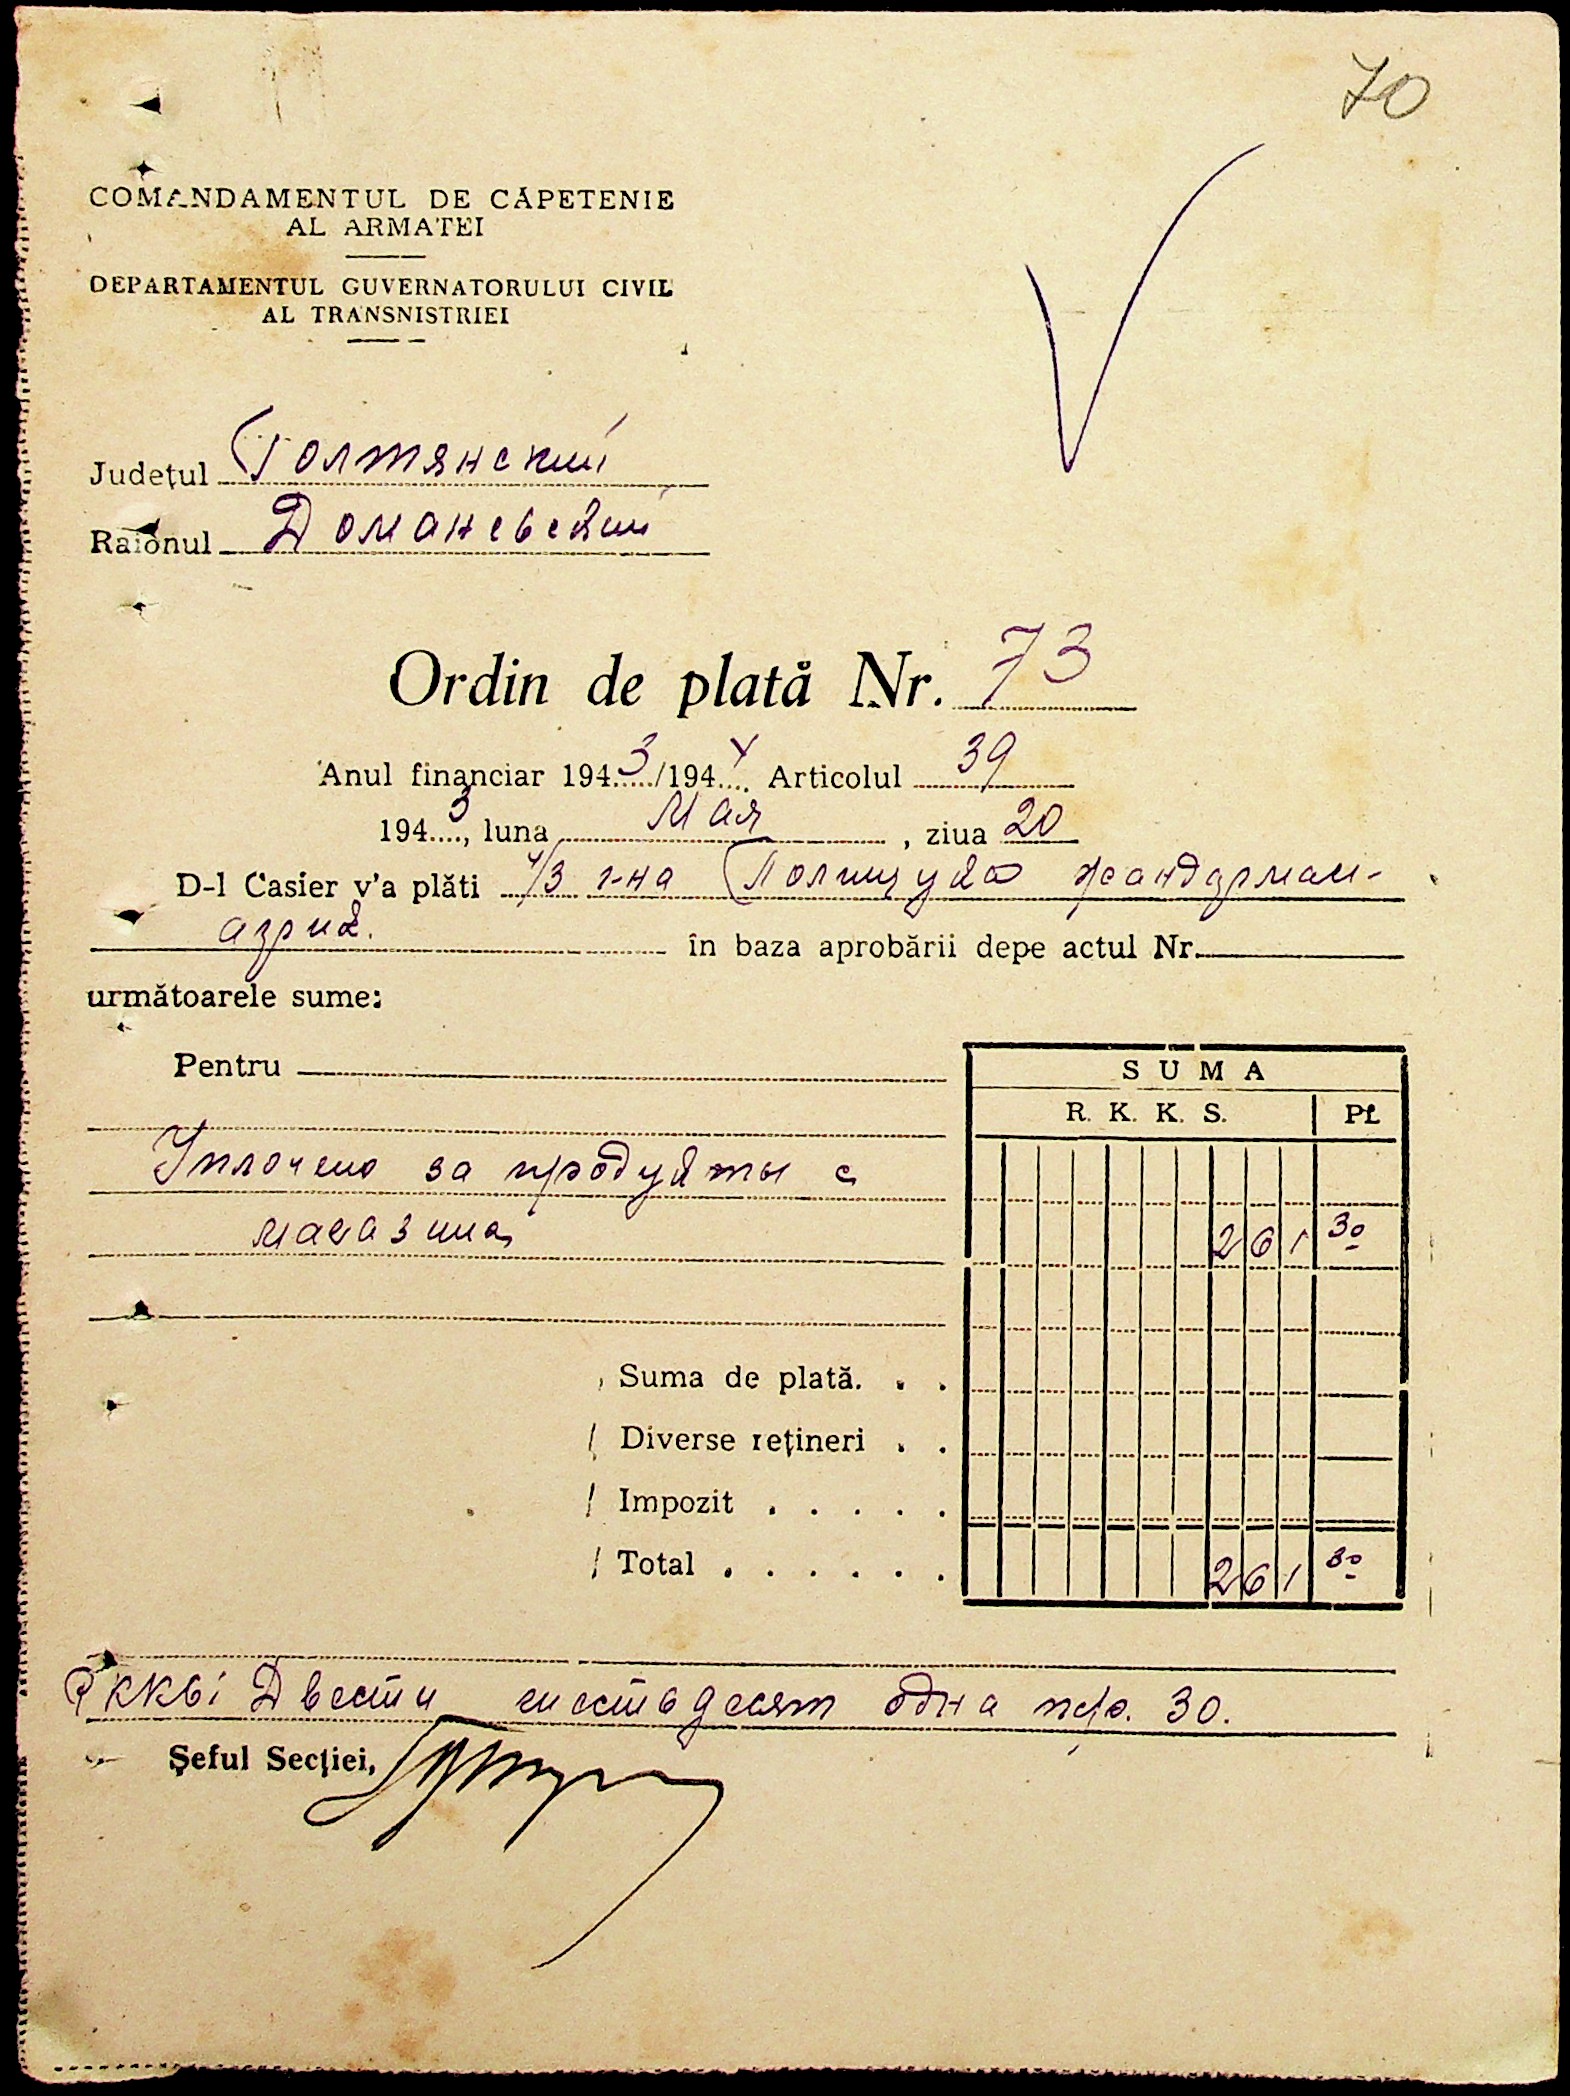 70
COMANDAMENTUL DE CĂPETENIE
AL ARMATEI
DEPARTAMENTUL GUVERNATORULUI CIVIL
AL TRANSNISTRIEI
Județul Голтянский
Raionul Доманевский
Ordin de plată Nr. 73
Anul financiar 1943/1944 Articolul 39
1943, luna Мая, ziua 20
D-l Casier v'a plăti ч/з г-на Полищука
în baza aprobării depe actul Nr.
următoarele sume:
Pentru
SUMA
R. K. K. S. Pf.
Уплочено за продукты с
магазина 261 30
Suma de plată. . .
Diverse rețineri . .
Impozit . . . . .
Total . . . . . . 261 30
РККС Двести шестьдесят одна пф. 30.
Șeful Secției,